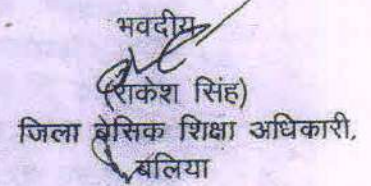 भवदीय
(राकेश सिंह)
जिला बेसिक शिक्षा अधिकारी,
बलिया